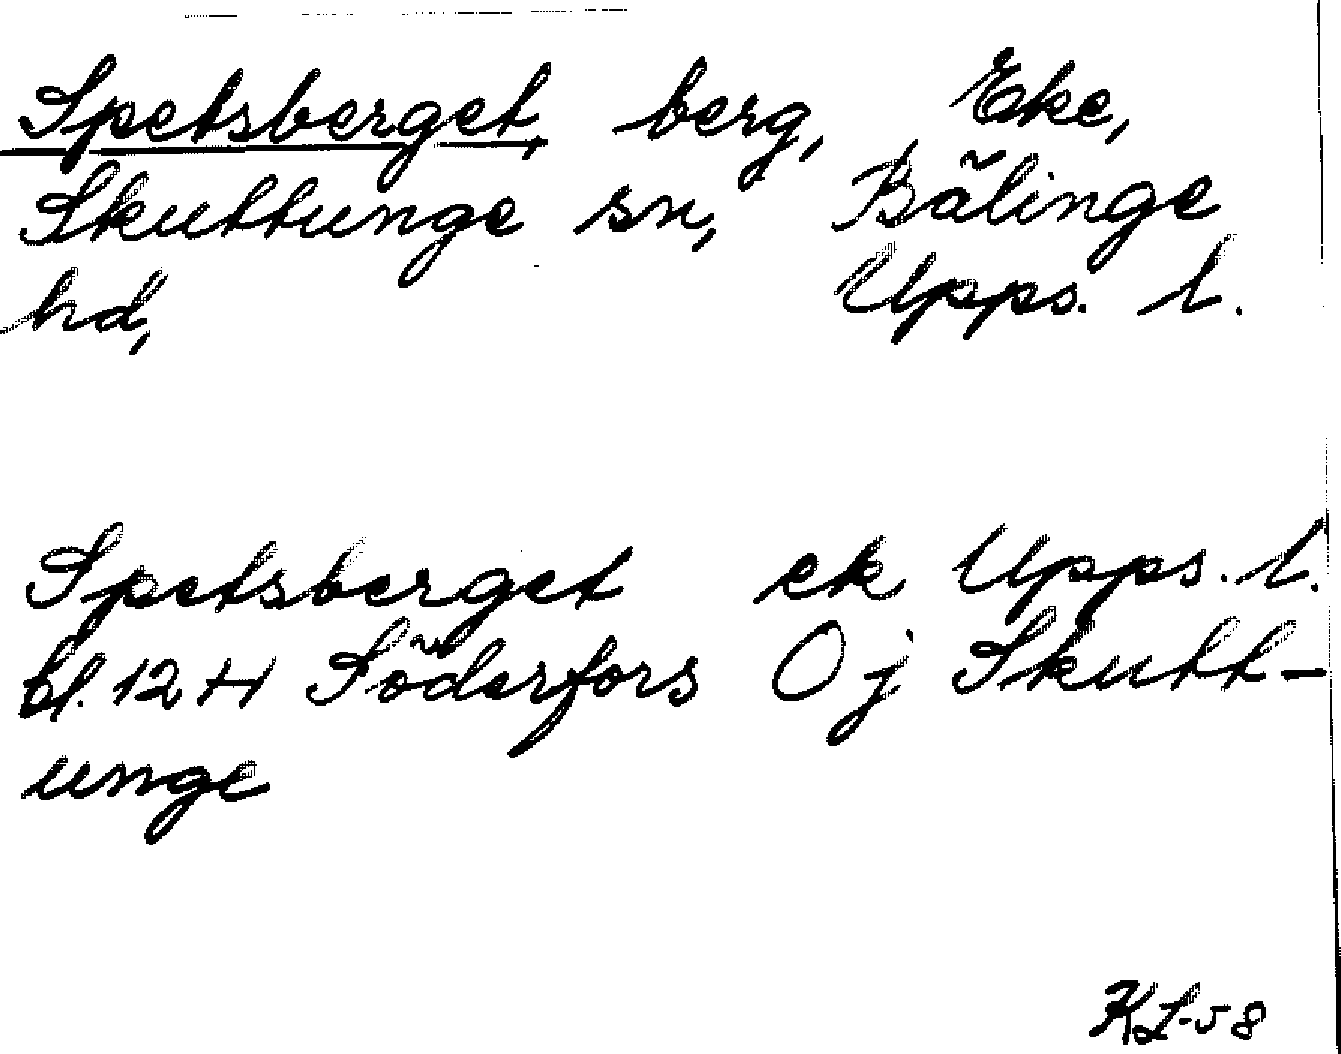 Spetsberget, berg, Eke,
Skuttunge sn, Bälinge
hd, Upps. l.
Spetsberget ek Upps. l.
bl. 12 H Söderfors 0 j Skutt-
unge
KL-58